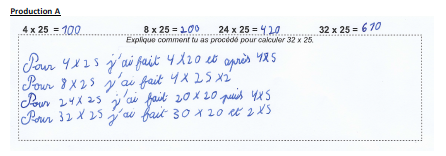 Production A
4 x 25 = 100 8 x 25 = 200 24 x 25 = 420 32 x 25 = 610
Explique comment tu as procédé pour calculer 32 x 25.
Pour 4x25 j'ai fait 4x20 et après 4x5
Pour 8x25 j'ai fait 4x25x2
Pour 24x25 j'ai fait 20x20 puis 4x5
Pour 32x25 j'ai fait 30x20 et 2x5